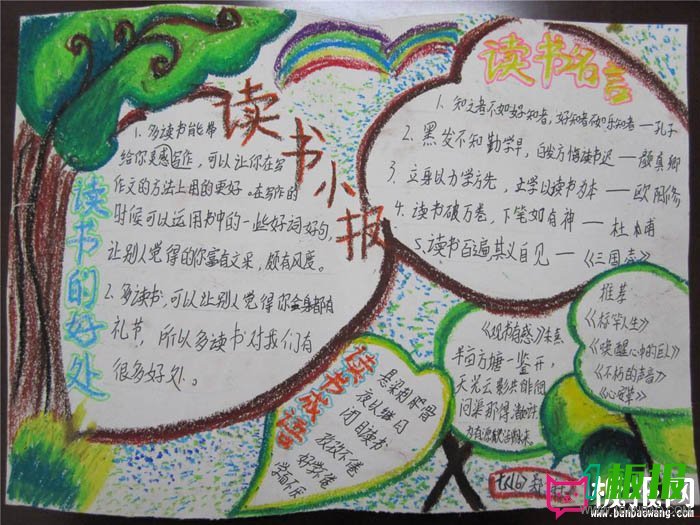 读书小报
读书的好处
1. 多读书能帮
给你灵感写作，可以让你在写
作文的方法上用的更好。在写作的
时候可以运用书中的一些好词好句，
让别人觉得的你富有文采，颇有风度。
2. 多读书，可以让别人觉得你全身都有
礼节，所以多读书对我们有
很多好处。
读书名言
1. 知之者不如好知者，好知者不如乐知者 — 孔子
2. 黑发不知勤学早，白发方悔读书迟 — 颜真卿
3. 立身以力学为先，立学以读书为本 — 欧阳修
4. 读书破万卷，下笔如有神 — 杜甫
5. 读书百遍其义自见 — 《三国志》
读书成语
悬梁刺股
夜以继日
闭目读书
孜孜不倦
好学不倦
学而不厌
《观书有感》朱熹
半亩方塘一鉴开，
天光云影共徘徊
问渠那得清如许
为有源头活水来
推荐
《唤醒心中的巨人》
《不朽的声音》
板报网
www.banbaowang.com